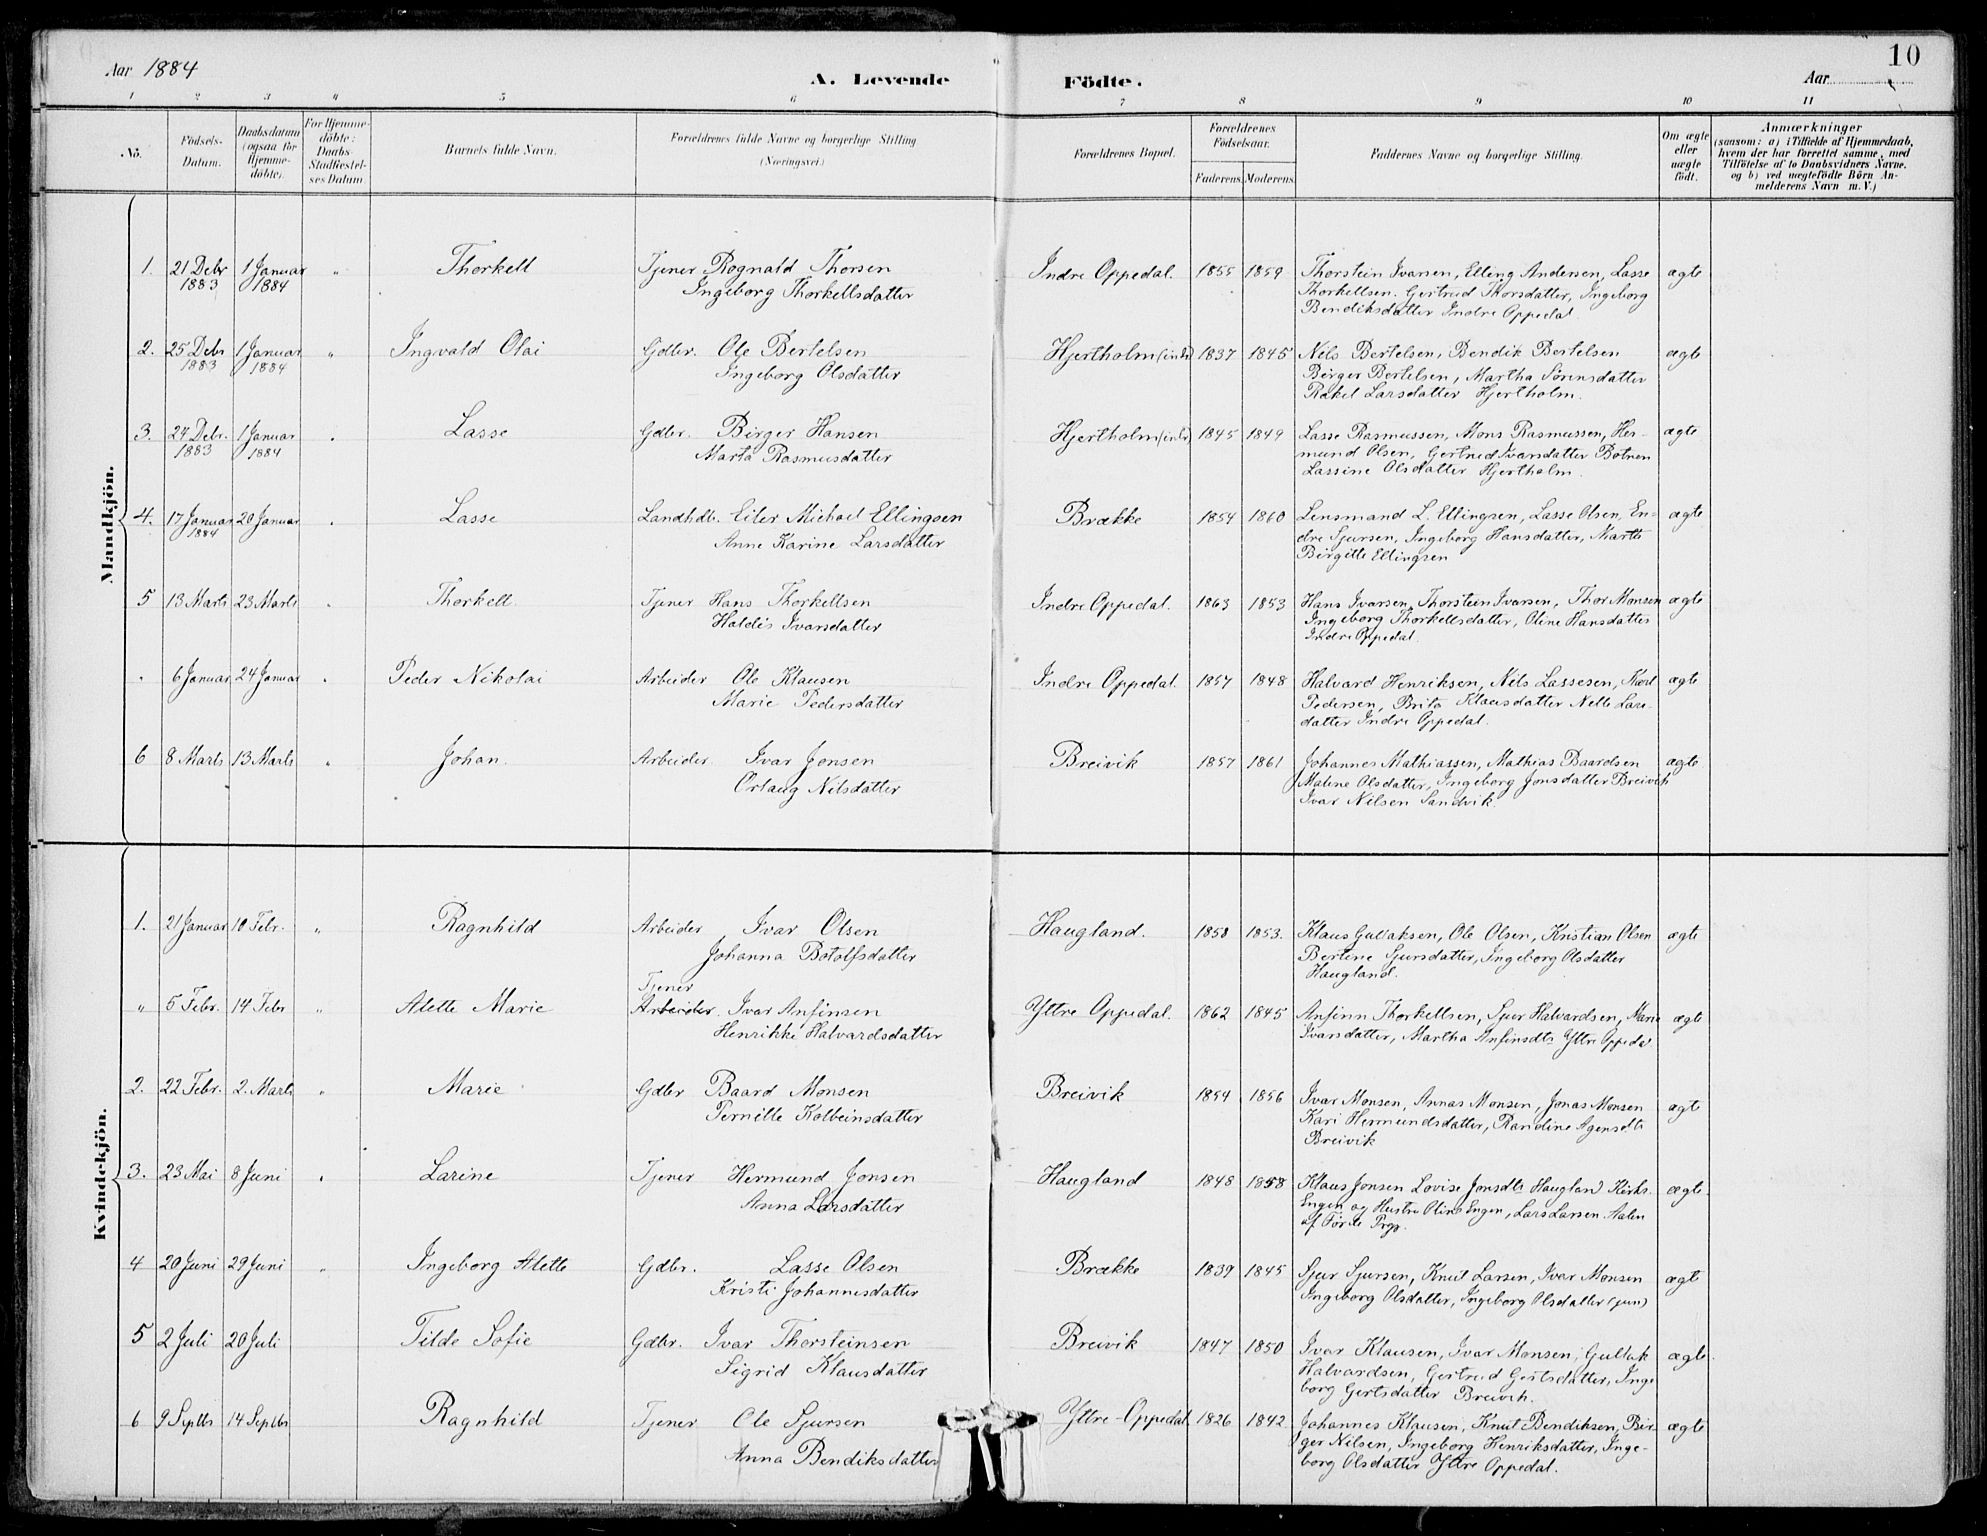 10
Aar 1884
A. Levende
Födte.
Aar
1 2 3 4 5 6 7 8 9 10 11
Nô.
Födsels-Datum.
Daabsdatum (ogsaa för Hjemme-döbte).
For Hjemme-döbte: Daabs-Stadfæstel-ses Datum
Barnets fulde Navn.
Forældrenes fulde Navne og borgerlige Stilling
(Næringsvei)
Forældrenes Bopæl.
Forældrenes Födselsaar.
Faderens. Moderens.
Faddernes Navne og borgerlige Stilling.
Om ægte eller uægte födt.
Anmærkninger
(saasom: a) i Tilfælde af Hjemmedaab,
hvem der har forrettet samme, med
Tilföielse af to Daabsvidners Navne.
og b) ved uægtefödte Börn An-
melderens Navn m. V.)
Mandkjön.
1. 21 Debr 1 Januar " Thorkell Tjener Rognald Thorsen Indre Oppedal. 1855 1859 Thorstein Ivarsen, Elling Andersen, Lasse ægte
1883 1884 Ingeborg Thorkellsdatter Thorkellsen. Gertrud Thorsdatter, Ingeborg
Bendiksdatter Indre Oppedal.
2. 25 Debr 1 Januar " Ingvald Olai Gdbr. Ole Bertelsen Hjertholm (indr) 1837 1845 Nils Bertelsen, Bendik Bertelsen ægte
1883 1884 Ingeborg Olsdatter Birger Bertelsen, Martha Sørensdatter
Rakel Larsdatter Hjertholm.
3. 24 Debr. 1 Januar " Lasse Gdbr. Birger Hansen Hjertholm (indr) 1845 1849 Lasse Rasmussen, Mons Rasmussen, Her- ægte
1883 1884 Marta Rasmusdatter mund Olsen, Gertrud Ivarsdatter Botnen
Lassine Olsdatter Hjertholm.
4. 17 Januar 20 Januar " Lasse Landhdl. Eiler Michael Ellingsen Brække 1854 1860 Lensmand L. Ellingsen, Lasse Olsen, En- ægte
1884 Anne Karine Larsdatter dre Sjursen, Ingeborg Hansdatter, Marthe
Birgitte Ellingsen
5 13 Marts 23 Marts " Thorkell. Tjener Hans Thorkellsen Indre Oppedal. 1863 1853 Hans Ivarsen, Thorstein Ivarsen, Thor Monsen ægte
Haldis Ivarsdatter Ingeborg Thorkellsdatter, Oline Hansdatter
Indre Oppedal.
" 6 Januar 24 Januar " Peder Nikolai Arbeider Ole Klausen Indre Oppedal. 1857 1848 Halvard Henriksen, Nils Lassesen, ægte
Marie Pedersdatter Pedersen, Brita Klausdatter Nelle Lars-
datter Indre Oppedal.
6 8 Marts 13 Marts " Johan. Arbeider. Ivar Jonsen Breivik 1857 1861 Johannes Mathiassen, Mathias Baardsen ægte
Orlaug Nilsdatter Malene Olsdatter, Ingeborg Jonsdatter Breivik
Ivar Nilsen Sandvik.
Kvindekjön.
1. 21 Januar 10 Febr. " Ragnhild Arbeider Ivar Olsen Haugland. 1858 1853. Klaus Gullaksen, Ole Olsen, Kristian Olsen ægte
Johanna Botolfsdatter Bertine Sjursdatter, Ingeborg Olsdatter
Haugland.
Tjener
" 5 Febr. 14 Febr " Alette Marie Arbeider. Ivar Anfinsen Yttre Oppedal. 1862 1845 Anfinn Thorkellsen, Sjur Halvardsen, Marie ægte
Henrikke Halvardsdatter Ivarsdatter, Martha Anfinsdtr Yttre Oppedal
2. 22 Febr. 2. Marts " Marie Gdbr Baard Monsen Breivik 1854 1856 Ivar Monsen, Annas Monsen, Jonas Monsen ægte
Pernille Kolbeinsdatter Kari Hermundsdatter, Randine Agensdtr
Breivik
3. 23 Mai 8 Juni " Larine Tjener Hermund Jonsen Haugland 1848 1858 Klaus Jonsen Lovise Jonsdtr Haugland Kirks. ægte
Anna Larsdatter Engen og Hustru Oline Engen, Lars Larsen Aalen
af Førde Prgj.
4 20 Juni 29 Juni " Ingeborg Alette Gdbr. Lasse Olsen Brække 1839 1845 Sjur Sjursen, Knut Larsen, Ivar Monsen ægte
Kristi Johannesdatter Ingeborg Olsdatter, Ingeborg Olsdatter (jun)
5 2 Juli 20 Juli Tilde Sofie Gdbr. Ivar Thorsteinsen Breivik 1847 1850 Ivar Klausen, Ivar Monsen, Gullak ægte.
Sigrid Klausdatter Halvardsen, Gertrud Gertsdatter, Inge
borg Gertsdatter Breivik.
6 9 Septbr 14 Septbr Ragnhild Tjener Ole Sjursen Yttre Oppedal 1826 1842 Johannes Klausen, Knut Bendiksen, Bir- ægte
Anna Bendiksdatter ger Nilsen, Ingeborg Henriksdatter, Inge-
borg Olsdatter Yttre Oppedal.